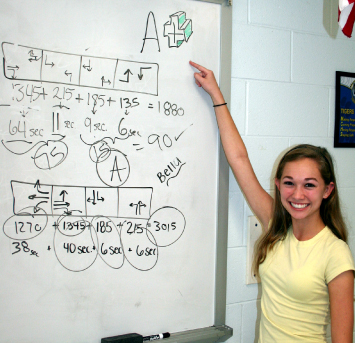 A
1345 + 215 + 185 + 135 = 1880
64 sec 11 sec 9 sec 6 sec = 90 ✓
A
Betty
1270 + 1345 + 185 + 215 = 3015
38 sec + 40 sec + 6 sec + 6 sec
TIGERS